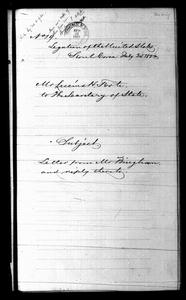 No 19
Legation of the United States
Seoul Corea July 25 188
Mr Lucius H. Foote
to The Secretary of State.
Subject
Letter from Mr Bingham
and reply thereto.